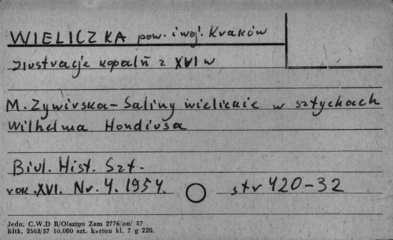 WIELICZKA pow. i woj. Kraków
Ilustracje kopalń z XVI w
M. Żywirska - Saliny wielickie w sztychach
Wilhelma Hondiusa
Biul. Hist. Szt.
rok. XVI. Nr. 4. 1954. str 420-32
Jedn. C.W.D B/Olsztyn Zam 2776/on/ 57
Bltk. 2563/57 10.000 szt. karton kl. 7 g 220.